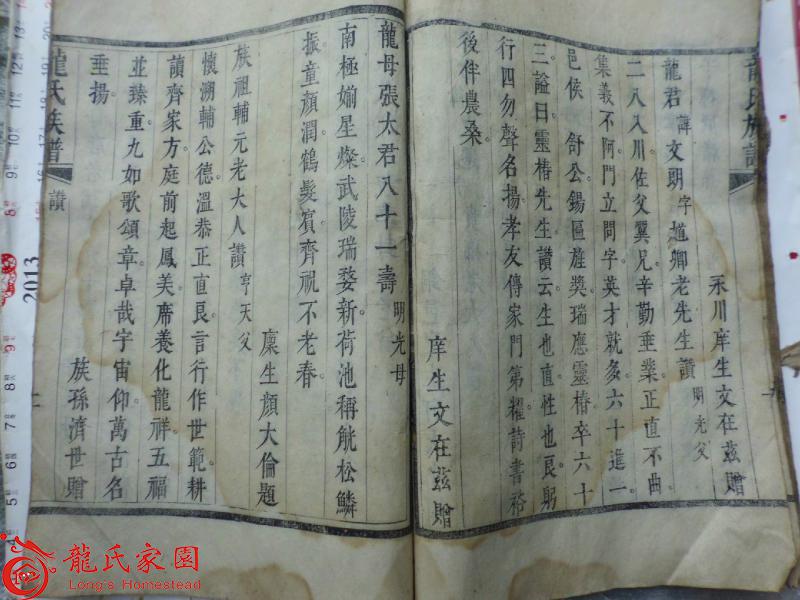 龍氏族譜
永川庠生文在茲贈
龍君諱文朗字道卿老先生讚 明光父
二八入川佐父翼兄辛勤垂業正直不曲
集義不阿門立問字英才就多六十進一
邑侯舒公錫匾旌獎瑞應靈椿卒六十
三謚曰靈椿先生讚云生也直性也良躬
行四勿聲名揚孝友傳家門第耀詩書裕
後伴農桑
庠生文在茲贈
龍母張太君八十一壽 明光母
南極媊星燦武陵瑞婺新荷池稱觥松鱗
振童顏潤鶴髮賓齊祝不老春
廩生顏大倫題
族祖輔元老大人讚 亨天父
懷溯輔公德溫恭正直良言行作世範耕
讀齊家方庭前起鳳美席養化龍祥五福
並臻重九如歌頌章卓哉宇宙仰萬古名
垂揚
族孫濟世贈
龍氏族譜
讚
2013
龍氏家園
Long's Homestead